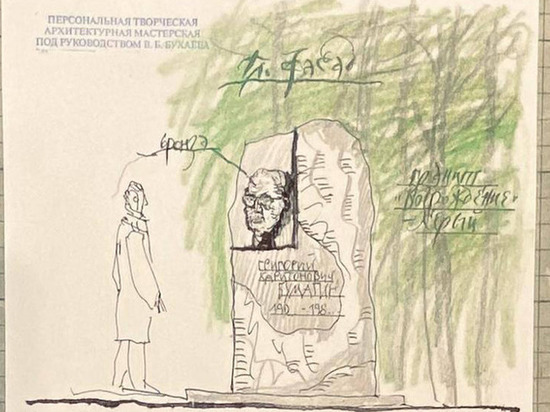 ПЕРСОНАЛЬНАЯ ТВОРЧЕСКАЯ
АРХИТЕКТУРНАЯ МАСТЕРСКАЯ
ПОД РУКОВОДСТВОМ В. Б. БУХАЕВА
Гл. фасад
бронза
гранит
"Возрождение"
- серый
ГРИГОРИЙ
ХАРИТОНОВИЧ
190 - 198